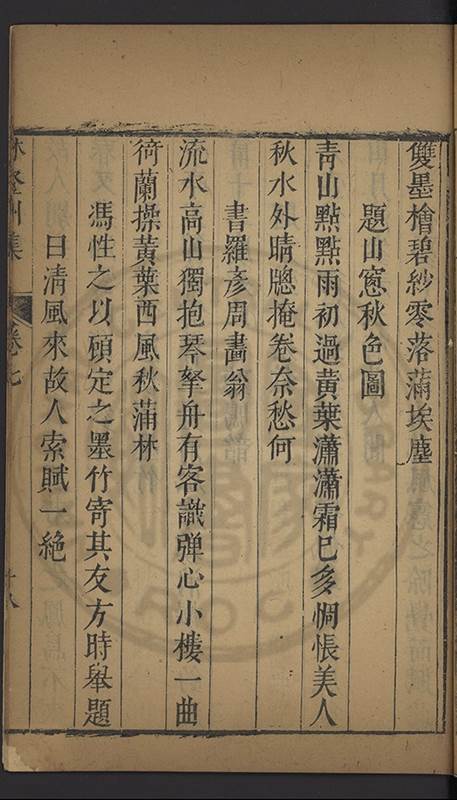 雙墨檜碧紗零落蒲埃塵
題山窻秋色圖
青山點點雨初過黄葉瀟瀟霜已多惆悵美人
秋水外晴牕掩卷奈愁何
書羅彥周畵翁
流水高山獨抱琴拏舟有客識弹心小樓一曲
猗蘭操黄葉西風秋蒲林
馮性之以頋定之墨竹寄其友方時舉題
曰清風來故人索賦一絶
林登州集
卷七
十八